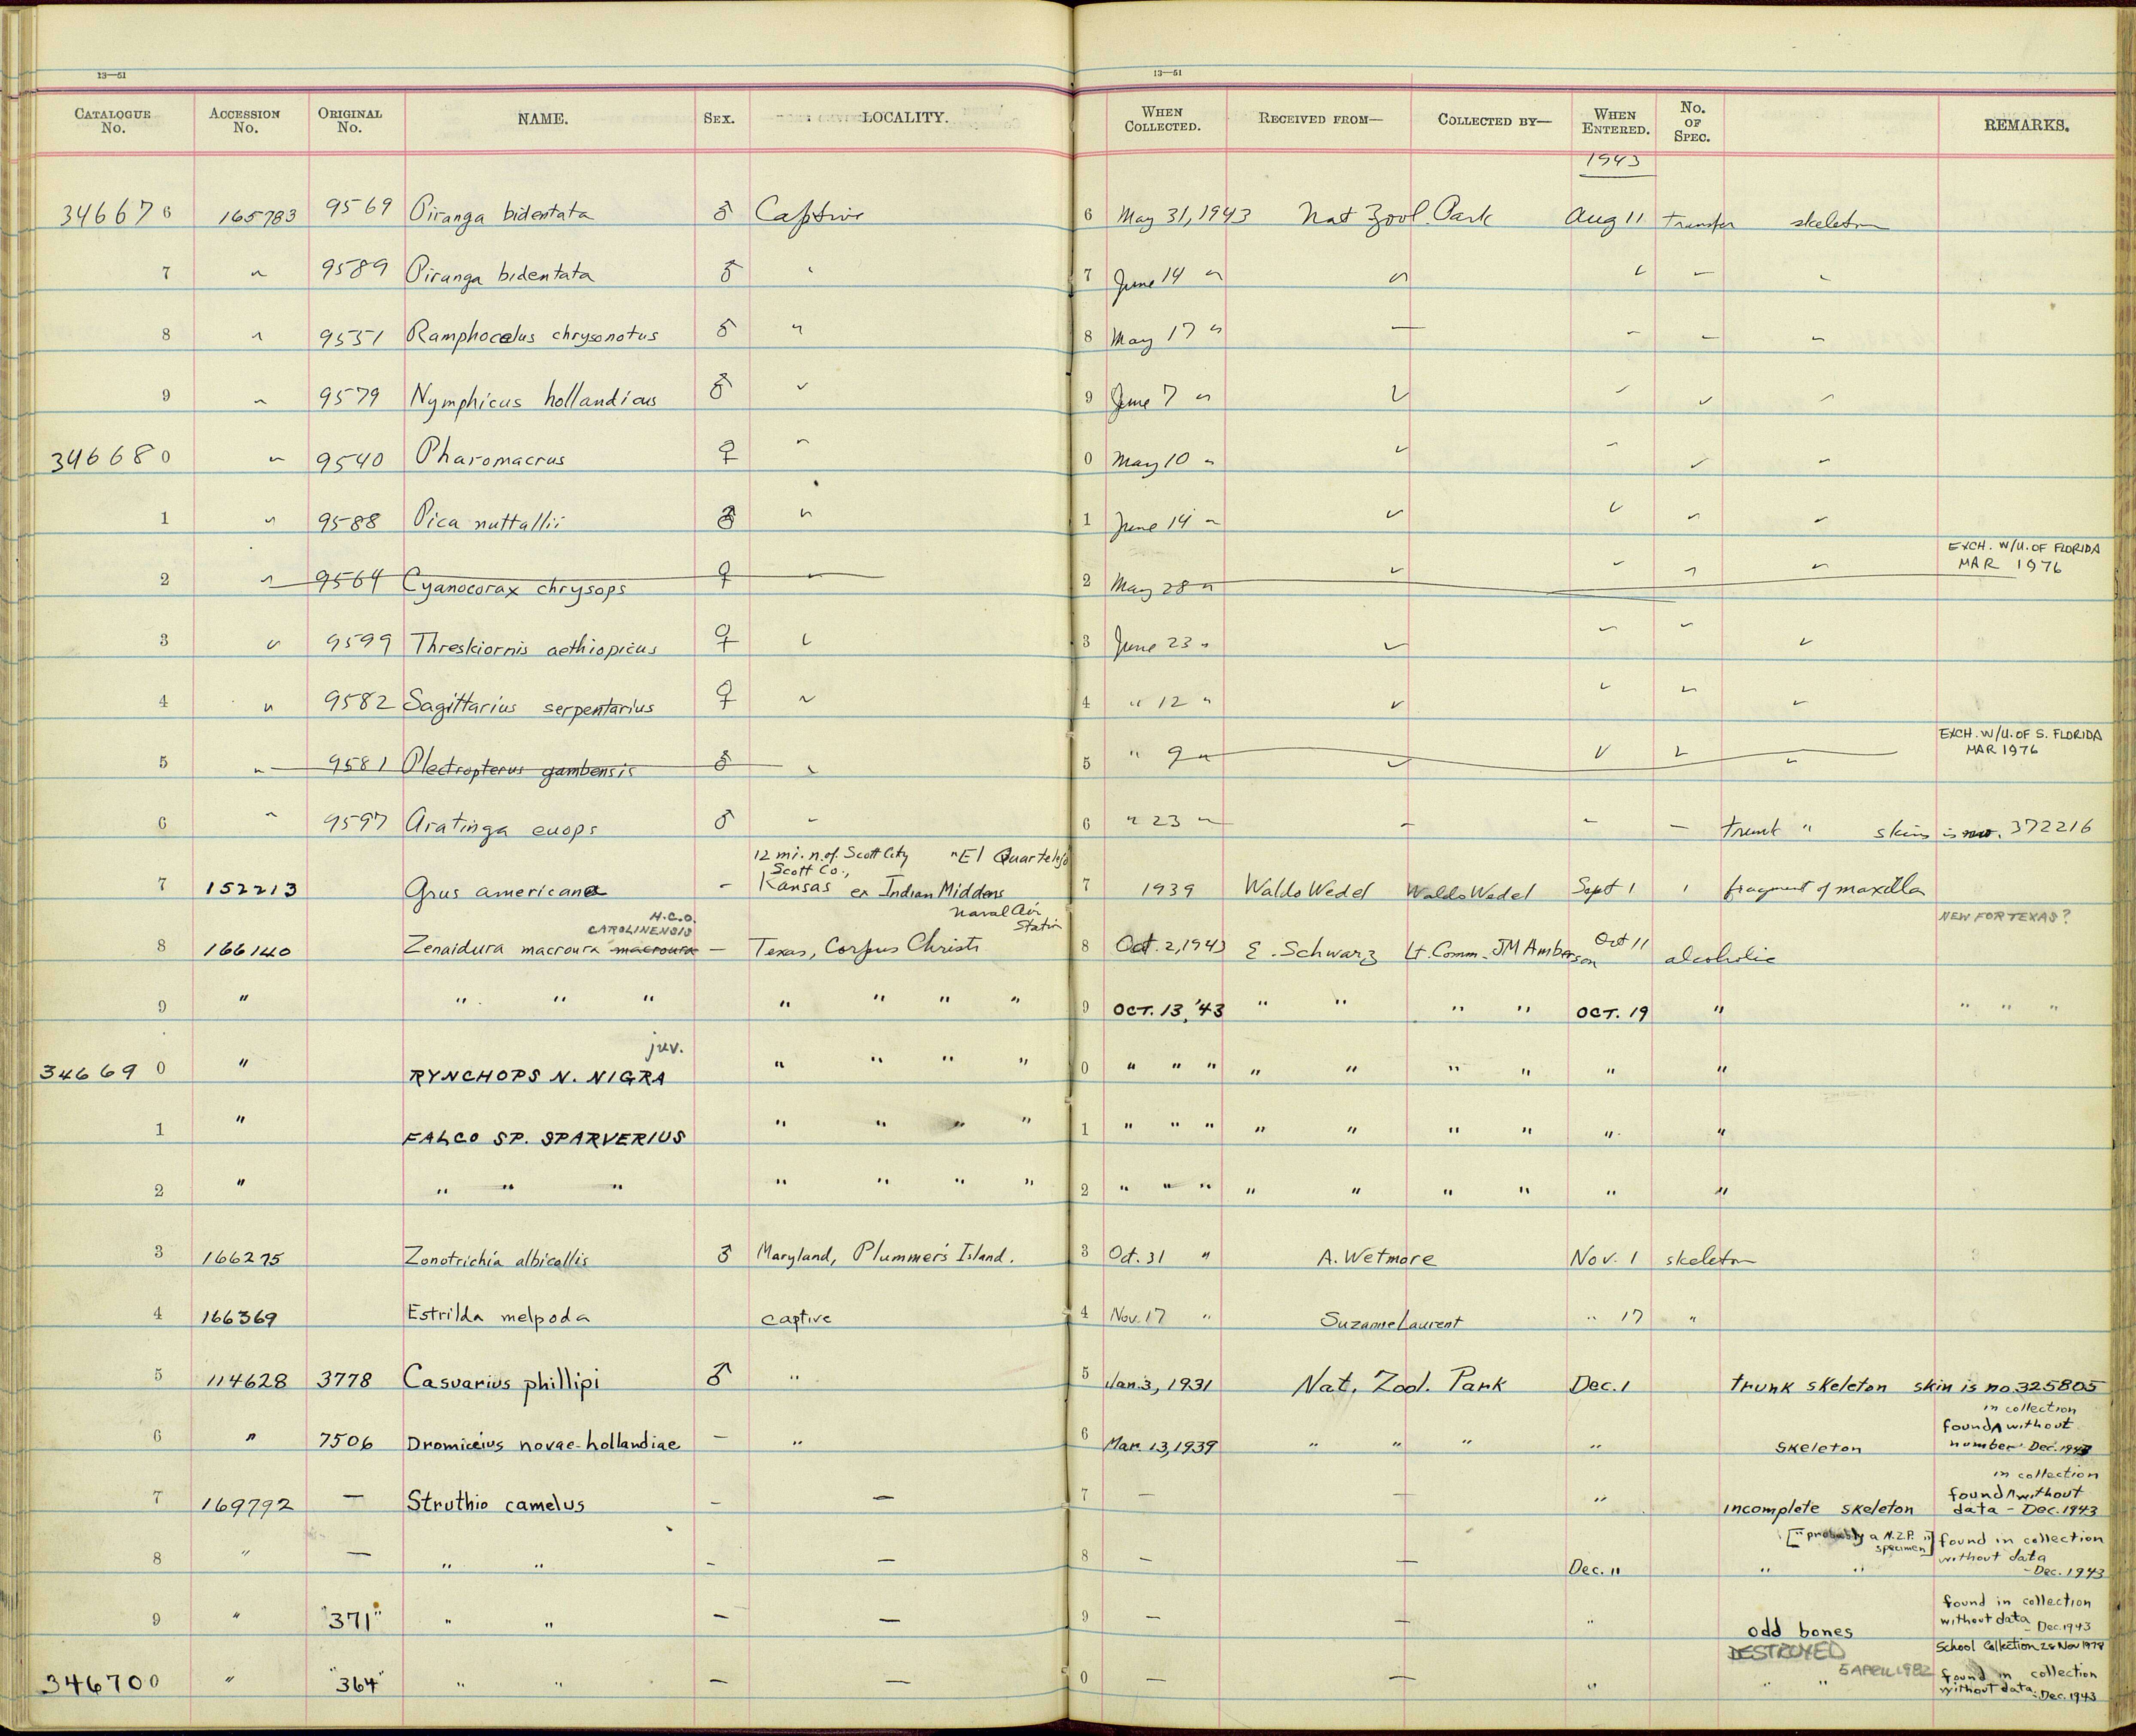 13—51
13—51
CATALOGUE No. ACCESSION No. ORIGINAL No. NAME. SEX. LOCALITY. WHEN COLLECTED. RECEIVED FROM— COLLECTED BY— WHEN ENTERED. No. OF SPEC. REMARKS.
1943
346676 165783 9569 Piranga bidentata ♂ Captive 6 May 31, 1943 Nat Zool. Park Aug 11 Transfer skeleton
7 " 9589 Piranga bidentata ♂ " 7 June 14 " " " " "
8 " 9551 Ramphocelus chrysonotus ♂ " 8 May 17 " " " " "
9 " 9579 Nymphicus hollandicus ♂ " 9 June 7 " " " " "
346680 " 9540 Pharomacrus ♀ " 0 May 10 " " " " "
1 " 9588 Pica nuttallii ♂ " 1 June 14 " " " " "
EXCH. W/U. OF FLORIDA
MAR 1976
2 " 9564 Cyanocorax chrysops ♀ " 2 May 28 " " " " "
3 " 9599 Threskiornis aethiopicus ♀ " 3 June 23 " " " " "
4 " 9582 Sagittarius serpentarius ♀ " 4 " 12 " " " " "
EXCH. W/U. OF S. FLORIDA
MAR 1976
5 " 9581 Plectropterus gambensis ♂ " 5 " 9 " " " " "
6 " 9597 Aratinga euops ♂ " 6 " 23 " " " " trunk " skin is no. 372216
12 mi. n. of Scott City "El Quartelejo
Scott Co.,
7 152213 Grus americana - Kansas ex Indian Middens 7 1939 Waldo Wedel Waldo Wedel Sept 1 1 fragment of maxilla
H.C.O.
CAROLINENSIS
Naval Air Station
NEW FOR TEXAS?
8 166140 Zenaidura macroura macroura — Texas, Corpus Christi 8 Oct. 2, 1943 E. Schwarz Lt. Comm. JM Amberson Oct 11 alcoholic
9 " " " " " " " " 9 OCT. 13, '43 " " " " OCT. 19 " " " "
juv.
346690 " RYNCHOPS N. NIGRA " " " " 0 " " " " " " " " "
1 " FALCO SP. SPARVERIUS " " " " 1 " " " " " " " " "
2 " " " " " " " " 2 " " " " " " " " "
3 166275 Zonotrichia albicollis ♂ Maryland, Plummer's Island. 3 Oct. 31 " A. Wetmore Nov. 1 skeleton 3
4 166369 Estrilda melpoda captive 4 Nov. 17 " Suzanne Laurent " 17 "
5 114628 3778 Casuarius phillipi ♂ " 5 Jan. 3, 1931 Nat. Zool. Park Dec. 1 trunk skeleton skin is no. 325805
in collection
found ∧ without
6 " 7506 Dromiceius novae-hollandiae — " 6 Mar. 13, 1939 " " " " skeleton number Dec. 1943
in collection
found ∧ without
7 169792 — Struthio camelus — — 7 — — " incomplete skeleton data - Dec. 1943
["probably a N.Z.P. specimen"] found in collection
without data
8 " — " " - — 8 — — Dec. " " " - Dec. 1943
found in collection
without data - Dec. 1943
9 " "371" " " — — 9 — — " odd bones
DESTROYED School Collection 28 Nov 1978
5 APRIL 1982
346700 " "364" " " — — 0 — — " " " found in collection
without data - Dec. 1943